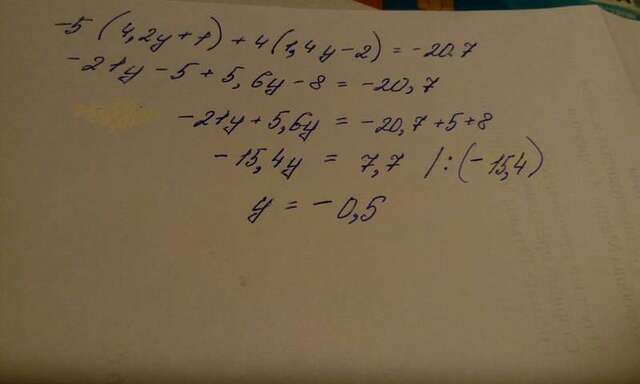 -5 (4,2y+1) + 4(1,4y-2) = -20.7
-21y - 5 + 5,6y - 8 = -20,7
-21y + 5,6y = -20,7 + 5 + 8
-15,4y = 7,7 /:(-15,4)
y = -0,5